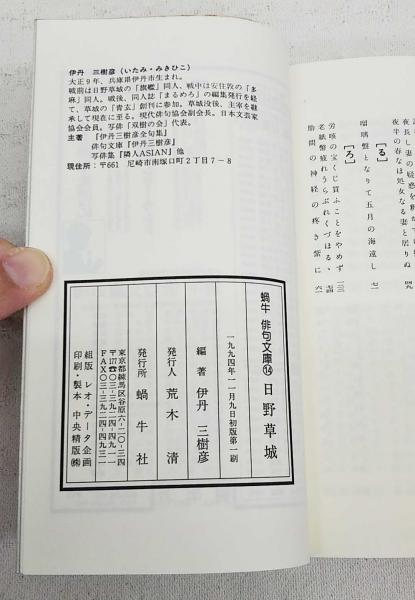 伊丹 三樹彦（いたみ・みきひこ）
大正9年、兵庫県伊丹市生まれ。
戦前は日野草城の「旗艦」同人、戦中は安住敦の「多
麻」同人。戦後、同人誌「まるめろ」の編集発行を経
て、草城の「青玄」創刊に参加。草城没後、主宰を継
承して現在に至る。現代俳句協会副会長。日本文芸家
協会会員。写俳「双樹の会」代表。
主著 『伊丹三樹彦全句集』
俳句文庫『伊丹三樹彦』
写俳集『隣人ASIAN』他
現住所：〒661 尼崎市南塚口町2丁目7－8
蝸牛 俳句文庫⑭ 日野草城
一九九四年一一月九日初版第一刷
編著 伊丹 三樹彦
発行人 荒木 清
発行所 蝸牛社
東京都練馬区谷原六-二〇-三四
組版 レオ・データ企画
印刷・製本 中央精版㈱
夜長し妻の疑惑を解くべしや
夜半の春なほ処女なる妻と居りぬ
【る】
瑠璃盤となりて五月の海遠し 七一
【ろ】
労咳の宝くじ買ふことをやめず
肋間の神経の疼き紫に